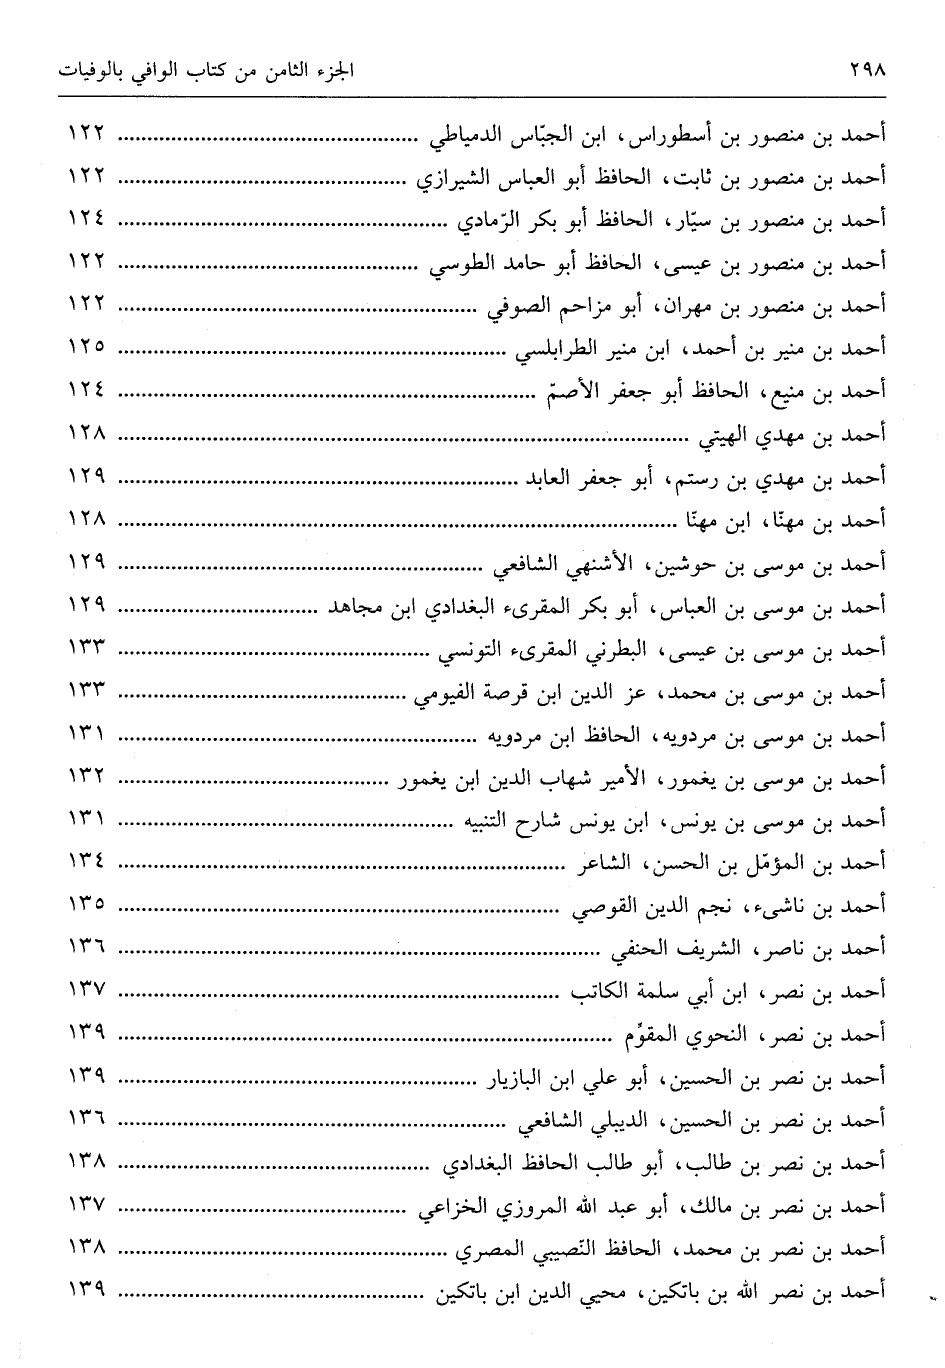 ٢٩٨ الجزء الثامن من كتاب الوافي بالوفيات
أحمد بن منصور بن أسطوراس، ابن الجبّاس الدمياطي ........ ١٢٢
أحمد بن منصور بن ثابت، الحافظ أبو العباس الشيرازي ........ ١٢٢
أحمد بن منصور بن سيّار، الحافظ أبو بكر الرّمادي ........ ١٢٤
أحمد بن منصور بن عيسى، الحافظ أبو حامد الطوسي ........ ١٢٢
أحمد بن منصور بن مهران، أبو مزاحم الصوفي ........ ١٢٢
أحمد بن منير بن أحمد، ابن منير الطرابلسي ........ ١٢٥
أحمد بن منيع، الحافظ أبو جعفر الأصمّ ........ ١٢٤
أحمد بن مهدي الهيتي ........ ١٢٨
أحمد بن مهدي بن رستم، أبو جعفر العابد ........ ١٢٩
أحمد بن مهنّا، ابن مهنّا ........ ١٢٨
أحمد بن موسى بن حوشين، الأشنهي الشافعي ........ ١٢٩
أحمد بن موسى بن العباس، أبو بكر المقرىء البغدادي ابن مجاهد ........ ١٢٩
أحمد بن موسى بن عيسى، البطرني المقرىء التونسي ........ ١٣٣
أحمد بن موسى بن محمد، عز الدين ابن قرصة الفيومي ........ ١٣٣
أحمد بن موسى بن مردويه، الحافظ ابن مردويه ........ ١٣١
أحمد بن موسى بن يغمور، الأمير شهاب الدين ابن يغمور ........ ١٣٢
أحمد بن موسى بن يونس، ابن يونس شارح التنبيه ........ ١٣١
أحمد بن المؤمّل بن الحسن، الشاعر ........ ١٣٤
أحمد بن ناشىء، نجم الدين القوصي ........ ١٣٥
أحمد بن ناصر، الشريف الحنفي ........ ١٣٦
أحمد بن نصر، ابن أبي سلمة الكاتب ........ ١٣٧
أحمد بن نصر، النحوي المقوِّم ........ ١٣٩
أحمد بن نصر بن الحسين، أبو علي ابن البازيار ........ ١٣٩
أحمد بن نصر بن الحسين، الديبلي الشافعي ........ ١٣٦
أحمد بن نصر بن طالب، أبو طالب الحافظ البغدادي ........ ١٣٨
أحمد بن نصر بن مالك، أبو عبد الله المروزي الخزاعي ........ ١٣٧
أحمد بن نصر بن محمد، الحافظ النّصيبي المصري ........ ١٣٨
أحمد بن نصر الله بن باتكين، محيي الدين ابن باتكين ........ ١٣٩